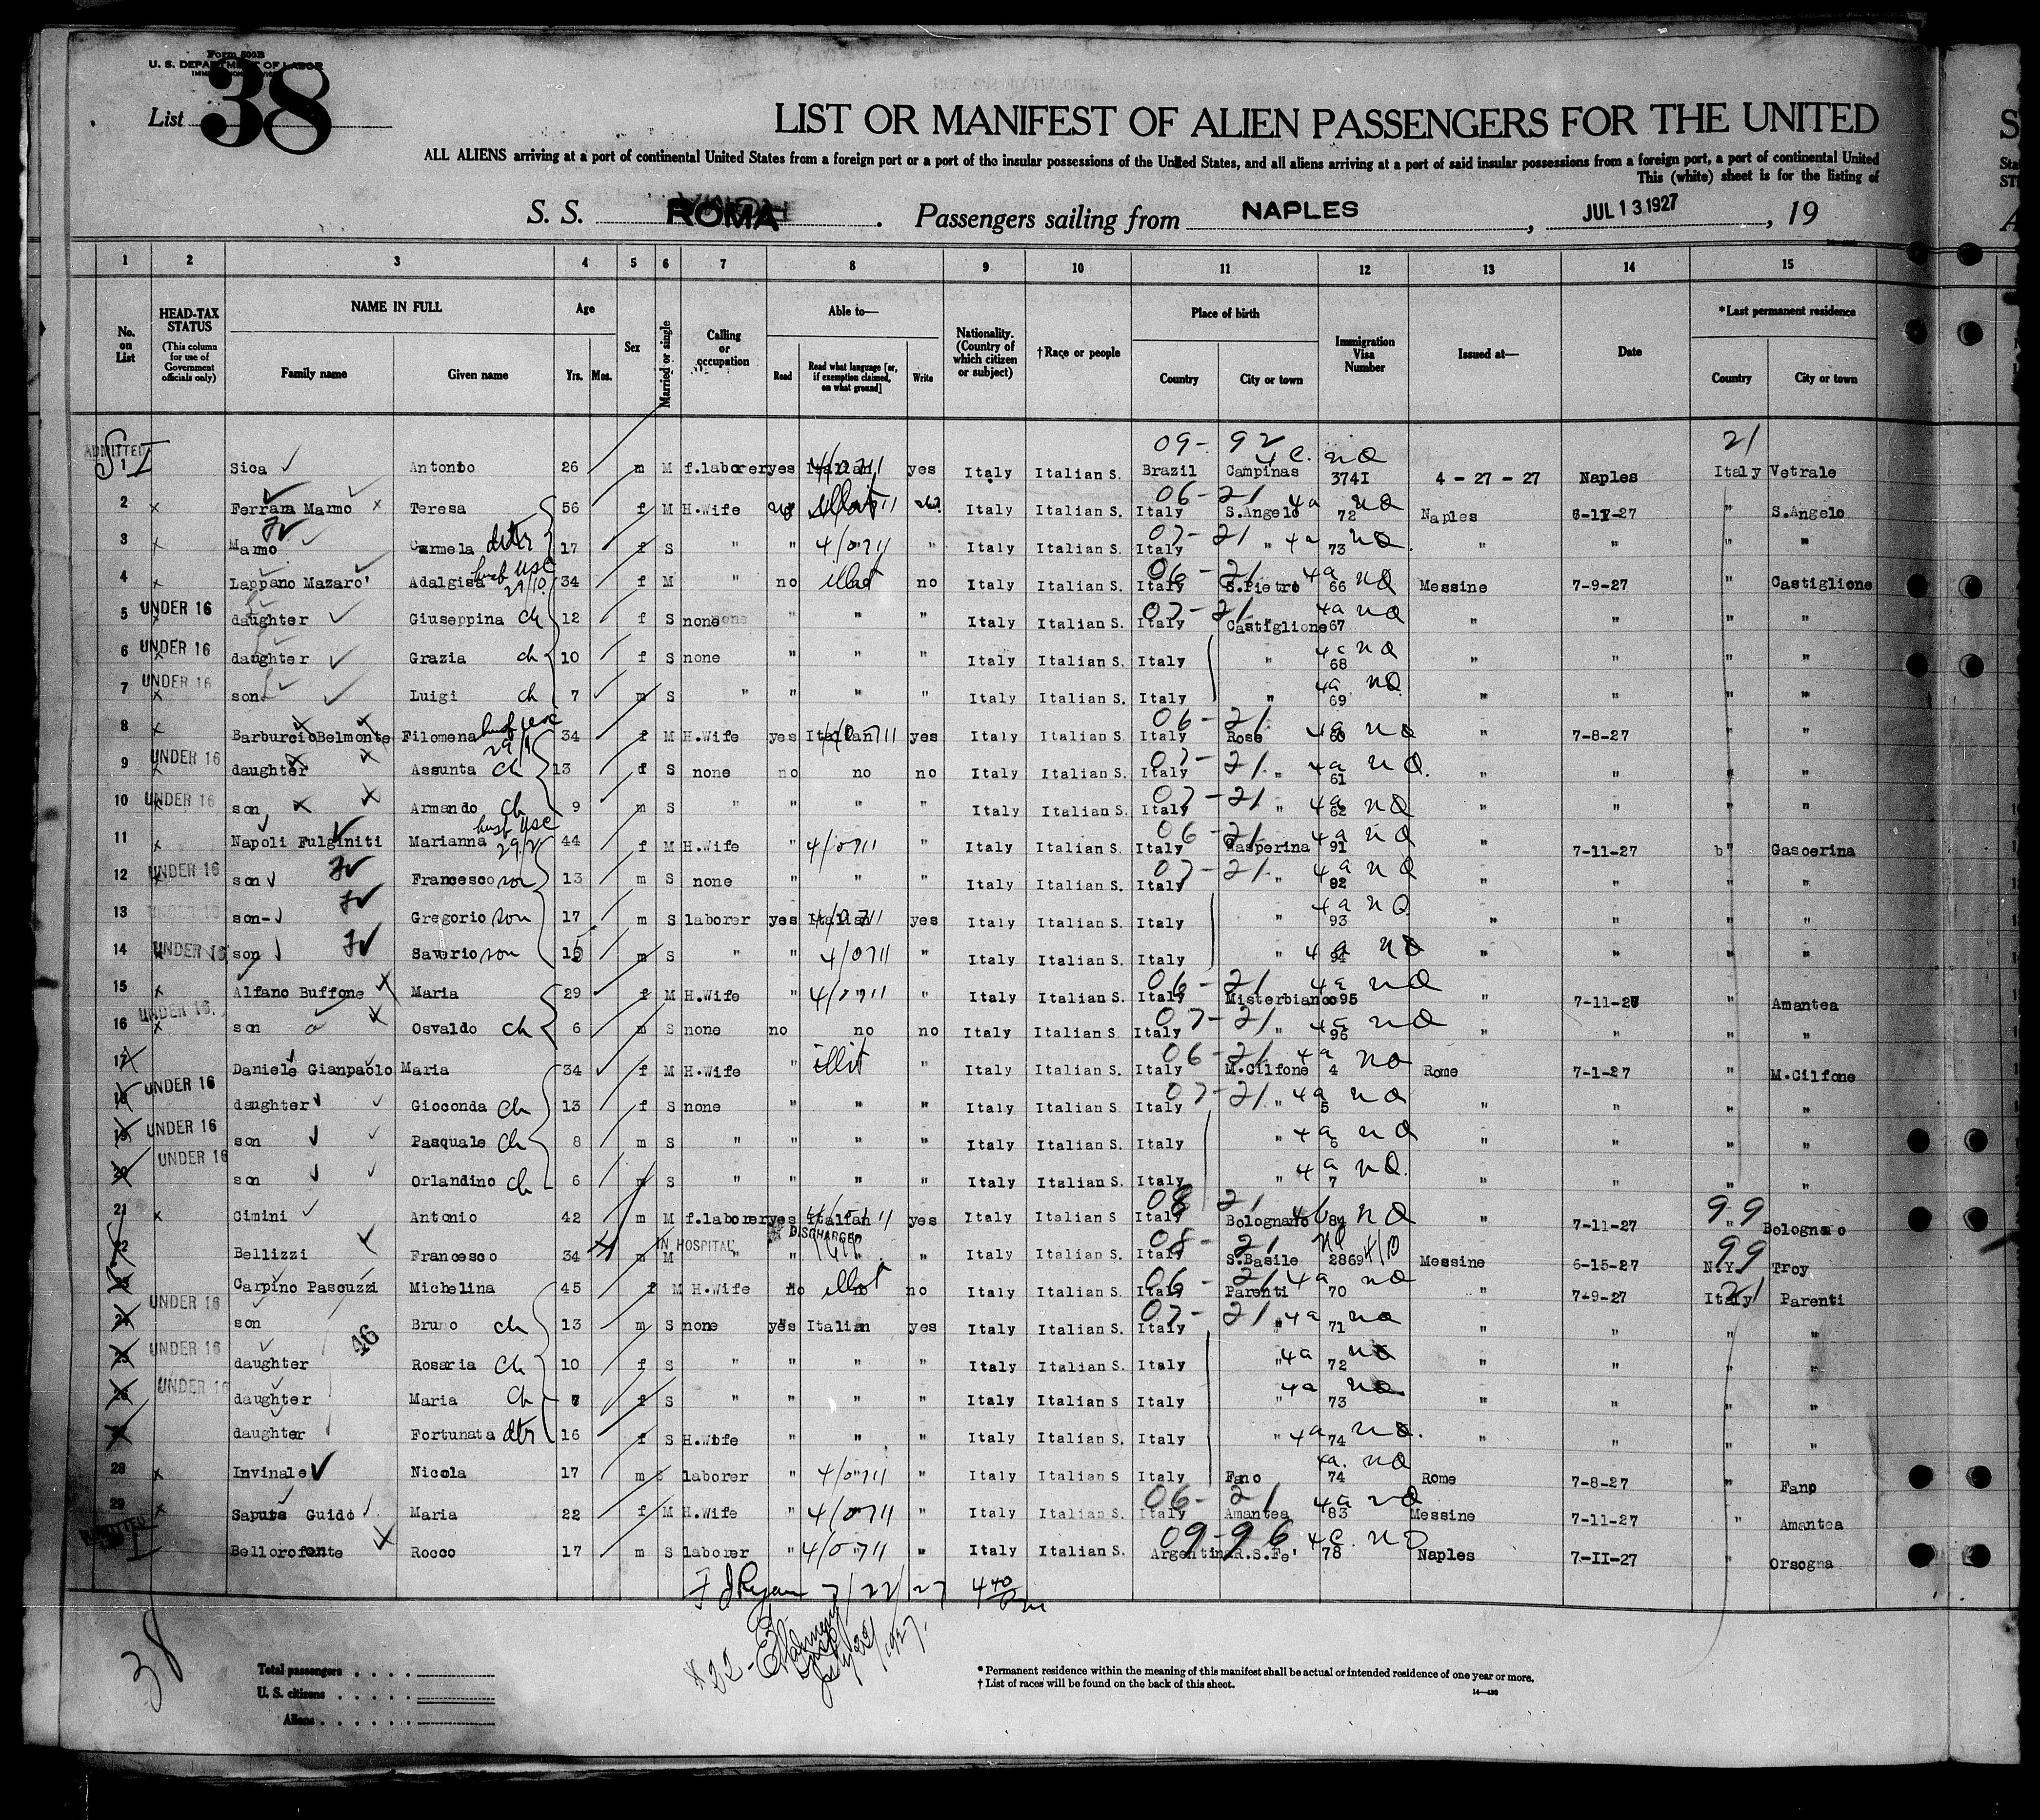 Form 500B
U. S. DEPARTMENT OF LABOR
List 38
LIST OR MANIFEST OF ALIEN PASSENGERS FOR THE UNITED
ALL ALIENS arriving at a port of continental United States from a foreign port or a port of the insular possessions of the United States, and all aliens arriving at a port of said insular possessions from a foreign port, a port of continental United
This (white) sheet is for the listing of
S. S. ROMA. Passengers sailing from NAPLES, JUL 13 1927, 19
1 2 3 4 5 6 7 8 9 10 11 12 13 14 15
No. on List
HEAD-TAX STATUS (This column for use of Government officials only)
NAME IN FULL Family name Given name
Age Yrs. Mos.
Sex
Married or single
Calling or occupation
Able to— Read Read what language [or, if exemption claimed, on what ground] Write
Nationality. (Country of which citizen or subject)
†Race or people
Place of birth Country City or town
Immigration Visa Number
Issued at—
Date
*Last permanent residence Country City or town
ADMITTED 1 SI Sica Antonio 26 m M f.laborer yes Italian yes Italy Italian S. Brazil Campinas 09-92 4c. nQ 374I 4 - 27 - 27 Naples 21 Italy Vetrale
2 x Ferrara Marmo x Teresa 56 f M H.Wife no illit no Italy Italian S. Italy 06-21 S.Angelo 4a nQ 72 Naples " S.Angelo
3 x Marmo Carmela dtr 17 f S " " 4/0711 " Italy Italian S. Italy 07-21 " 4a nQ 73 " " " "
4 x Lappano Mazaro' Adalgisa husb USC 34 f M " no illit no Italy Italian S. Italy 06-21 S.Pietro 4a nQ 66 Messine 7-9-27 " Castiglione
5 UNDER 16 daughter Giuseppina ch 12 f S none " " " Italy Italian S. Italy 07-21 Castiglione 4a nQ 67 " " " "
6 UNDER 16 daughter Grazia ch 10 f S none " " " Italy Italian S. Italy " 4a nQ 68 " " " "
7 UNDER 16 son Luigi ch 7 m S " " " " Italy Italian S. Italy " 4a nQ 69 " " " "
8 x Barburcio Belmonte Filomena 34 f M H.Wife yes Italian yes Italy Italian S. Italy 06-21 Rose 4a nQ 60 " 7-8-27 " "
9 UNDER 16 daughter Assunta ch 13 f S none no no no Italy Italian S. Italy 07-21 " 4a nQ 61 " " " "
10 UNDER 16 son Armando ch 9 m S " " " " Italy Italian S. Italy 07-21 " 4a nQ 62 " " " "
11 x Napoli Fulginiti Marianna husb USC 44 f M H.Wife " 4/0711 " Italy Italian S. Italy 06-21 Gasperina 4a nQ 91 " 7-11-27 " Gascerina
12 UNDER 16 son Francesco son 13 m S none " " " Italy Italian S. Italy 07-21 " 4a nQ 92 " " " "
13 son Gregorio son 17 m S laborer yes Italian yes Italy Italian S. Italy " 4a nQ 93 " " " "
14 UNDER 16 son Saverio son 15 m S " " 4/0711 " Italy Italian S. Italy " 4a nQ 94 " " " "
15 x Alfano Buffone Maria 29 f M H.Wife " 4/0711 " Italy Italian S. Italy 06-21 Misterbianco 4a nQ 95 " 7-11-27 " Amantea
16 UNDER 16 son Osvaldo ch 6 m S none no no no Italy Italian S. Italy 07-21 " 4a nQ 96 " " " "
17 Daniele Gianpaolo Maria 34 f M H.Wife " illit " Italy Italian S. Italy 06-21 M.Cilfone 4a nQ 4 Rome 7-1-27 " M.Cilfone
18 UNDER 16 daughter Gioconda ch 13 f S none " " " Italy Italian S. Italy 07-21 " 4a nQ 5 " " " "
19 UNDER 16 son Pasquale ch 8 m S " " " " Italy Italian S. Italy " 4a nQ 6 " " " "
20 UNDER 16 son Orlandino ch 6 m S " " " " Italy Italian S. Italy " 4a nQ 7 " " " "
21 x Cimini Antonio 42 m M f.laborer yes Italian yes Italy Italian S. Italy 08 21 Bolognano 4b nQ 84 " 7-11-27 99 " Bolognano
22 Bellizzi Francesco 34 m M IN HOSPITAL DISCHARGED " " " Italy Italian S. Italy 08-21 S.Basile 2869 Messine 6-15-27 99 N.Y. Troy
23 Carpino Pascuzzi Michelina 45 f M H.Wife no illit no Italy Italian S. Italy 06-21 Parenti 4a nQ 70 " 7-9-27 21 Italy Parenti
24 UNDER 16 son Bruno ch 13 m S none yes Italian yes Italy Italian S. Italy 07-21 " 4a nQ 71 " " " "
25 UNDER 16 daughter 46 Rosaria ch 10 f S " " " " Italy Italian S. Italy " 4a nQ 72 " " " "
26 UNDER 16 daughter Maria ch 7 f S " " " " Italy Italian S Italy " 4a nQ 73 " " " "
27 daughter Fortunata dtr 16 f S H.Wife " " " Italy Italian S. Italy " 4a nQ 74 " " " "
28 x Invinale Nicola 17 m S laborer " 4/0711 " Italy Italian S Italy Fano 4a. nQ 74 Rome 7-8-27 " Fano
29 x Sapute Guido Maria 22 f M H.Wife " 4/0711 " Italy Italian S. Italy 06-21 Amantea 4a nQ 83 Messine 7-11-27 " Amantea
ADMITTED Bellorofonte Rocco 17 m S laborer " 4/0711 " Italy Italian S. Argentina 09-96 R.S.Fe' 4c. nQ 78 Naples 7-II-27 " Orsogna
F J Ryan 7/22/27 4 40 Pm
38
Total passengers . . . .
U. S. citizens . . . . .
Aliens . . . . . .
* Permanent residence within the meaning of this manifest shall be actual or intended residence of one year or more.
† List of races will be found on the back of this sheet.